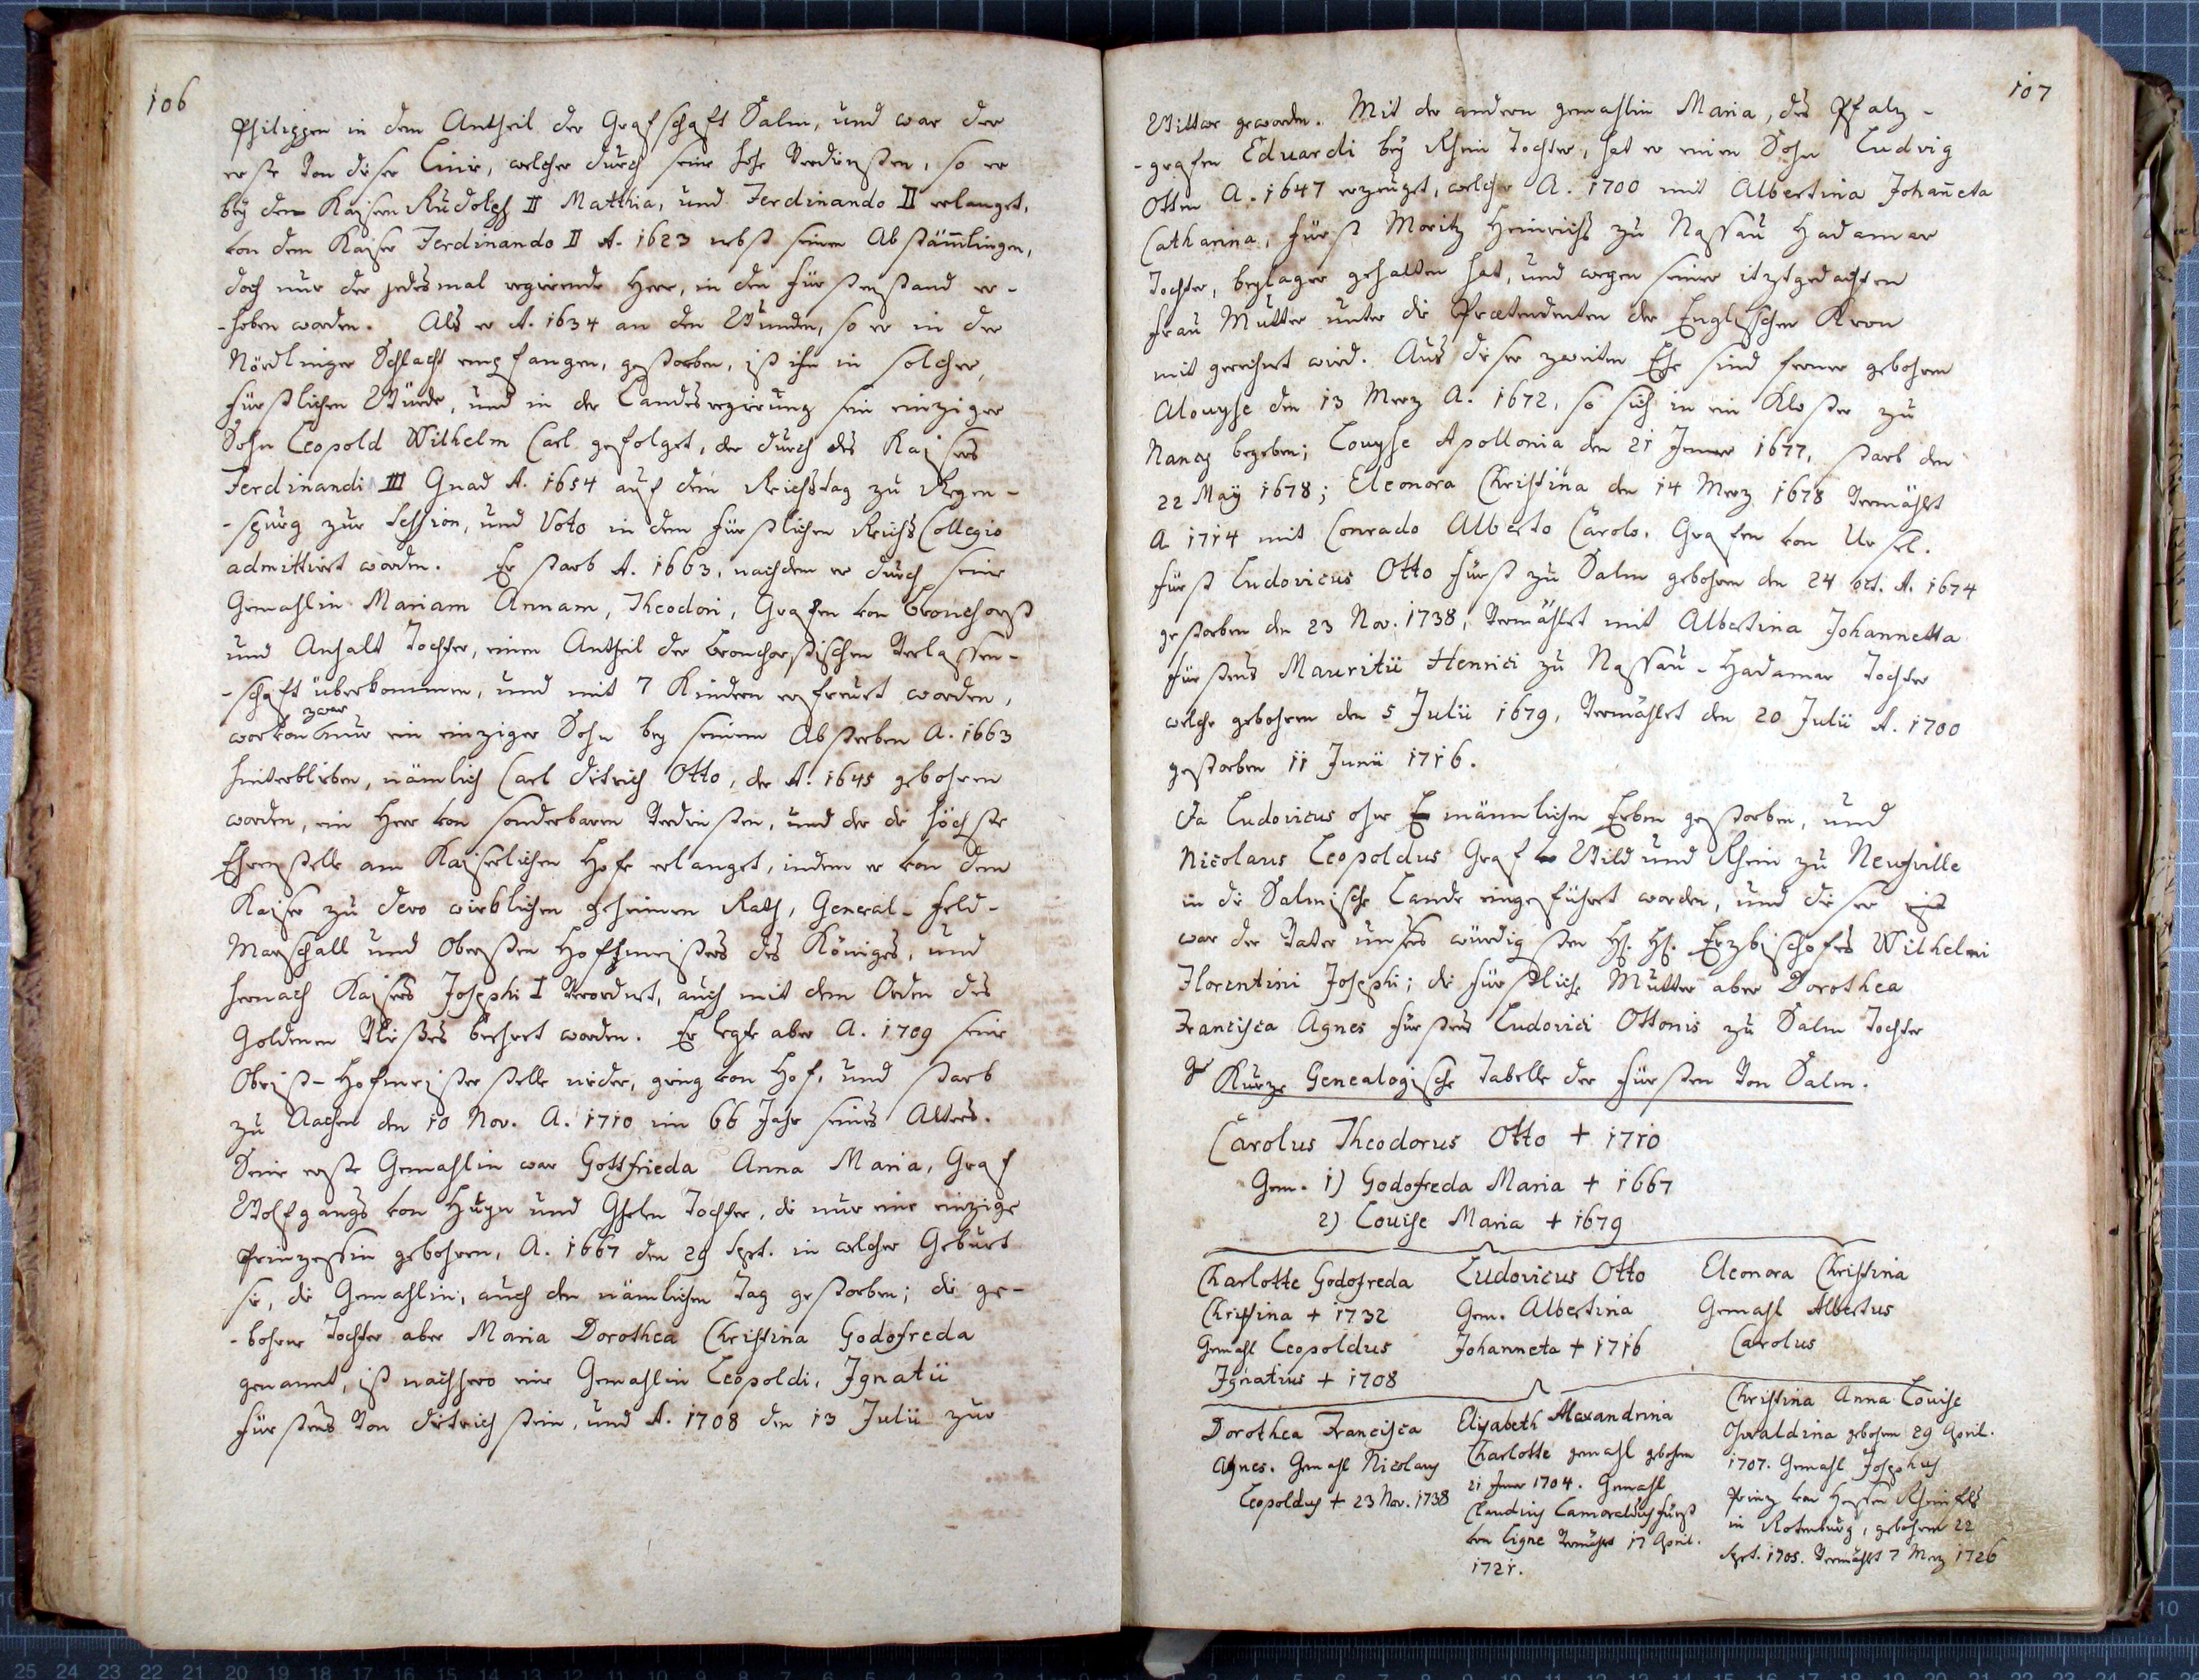 106
Philippen in dem Antheil der Grafschaft Salm, und war der
erste von diser Linie, welcher durch seine hohe Verdiensten, so er
bey dem Kaisern Rudolph II Matthia, und Ferdinando II erlanget,
von dem Kaiser Ferdinando II A. 1623 nebst seinen Abstämlingen,
doch nur der jedesmal regirende Herr, in den Fürstenstand er-
-hoben worden. Als er A. 1634 an den Wunden, so er in der
Nördlinger Schlacht empfangen, gestorben, ist ihm in solcher
fürstlichen Würde, und in der Landsregirung sein einziger
Sohn Leopold Wilhelm Carl gefolget, der durch des Kaisers
Ferdinandi III Gnad A. 1654 auf dem Reichstag zu Regen-
-spurg zur Session, und Voto in dem fürstlichen Reichs Collegio
admittirt worden. Er starb A. 1663, nachdem er durch seine
Gemahlin Mariam Annam, Theodori, Grafen von Bronchorst
und Anhalt Tochter, einen Antheil der Bronchorstischen Verlassen-
-schaft überkommen, und mit 7 Kindern erfreuet worden,
zwar
worvon nur ein einziger Sohn bey seinem Absterben A. 1663
hinterblieben, nämlich Carl Ditrich Otto, der A. 1645 gebohren
worden, ein Herr von sonderbaren Verdiensten, und der die höchste
Ehrenstelle am Kaiserlichen Hofe erlanget, indem er von dem
Kaiser zu dero wirklichen geheimen Rath, General-Feld-
Marschall und Obersten Hofmeisters des Königs, und
hernach Kaisers Josephi I verordnet, auch mit dem Orden des
Goldenen Vließes beehret worden. Er legte aber A. 1709 seine
Obrist-Hofmeisterstelle nider, gieng von Hof, und starb
zu Aachen den 10 Nov. A. 1710 im 66 Jahr seines Alters.
Seine erste Gemahlin war Gottfrieda Anna Maria, Graf
Wolfgangs von Huyn und Gheln Tochter, die nur eine einzige
Prinzessin gebohren, A. 1667 den 29 Sept. in welcher Geburt
sie, die Gemahlin, auch den nämlichen Tag gestorben; die ge-
-bohrne Tochter aber Maria Dorothea Christina Godofreda
genannt, ist nachhero eine Gemahlin Leopoldi, Ignatii
Fürstens von Ditrichstein, und A. 1708 den 13 Julii zur
107
Wittwe geworden. Mit der andern gemahlin Maria, des Pfalz-
-grafen Eduardi bey Rhein Tochter, hat er einen Sohn Ludwig
Otten A. 1647 erzeuget, welcher A. 1700 mit Albertina Johañeta
Catharina, Fürst Moritz Heinrichs zu Nassau Hadamar
Tochter, beylager gehalten hat, und wegen seiner itztgedachten
Frau Mutter unter die Prætendenten der Englischen Kron
mit gerechnet wird. Aus diser zweiten Ehe sind ferner gebohren
Alouyse den 13 Merz A. 1672, so sich in ein Kloster zu
Nancy begeben; Louyse Apollonia den 21 Jenner 1677, starb den
22 Maÿ 1678; Eleonora Christina den 14 Merz 1678 vermählt
A 1714 mit Conrado Alberto Carolo, Grafen von Ursel.
Fürst Ludovicus Otto Fürst zu Salm gebohren den 24 oct. A. 1674
gestorben den 23 Nov. 1738, vermählet mit Albertina Johannetta
Fürstens Mauritii Henrici zu Nassau-Hadamar Tochter
welche gebohren den 5 Julii 1679, vermählet den 20 Julii A. 1700
gestorben 11 Junii 1716.
Da Ludovicus ohne männlichen Erben gestorben, und
Nicolaus Leopoldus Graf Wild und Rhein zu Neufville
in die Salmische Lande eingeführt worden, und diser
war der Vater unsers würdigsten H. H. Erzbischofes Wilhelmi
Florentini Josephi; die fürstliche Mutter aber Dorothea
Francisca Agnes Fürstens Ludovici Ottonis zu Salm Tochter
Kurze Genealogische Tabelle der Fürsten von Salm.
Carolus Theodorus Otto + 1710
Gem. 1) Godofreda Maria + 1667
2) Louise Maria + 1679
Charlotte Godofreda
Christina + 1732
Gemahl Leopoldus
Ignatius + 1708
Ludovicus Otto
Gem. Albertina
Johanneta + 1716
Eleonora Christina
Gemahl Albertus
Carolus
Dorothea Francisca
Agnes. Gemahl Nicolaus
Leopoldus + 23 Nov. 1738
Elisabeth Alexandrina
Charlotte gemahl gebohren
21 Jener 1704. Gemahl
Claudius Lamoraldus Fürst
von Ligne vermählt 17 April.
1721.
Christina Anna Louise
Oswaldina gebohren 29 April.
1707. Gemahl Josephus
Prinz von Hessen Rheinfels
in Rotenburg, gebohren 22
Sept. 1705. vermählt 7 Merz 1726